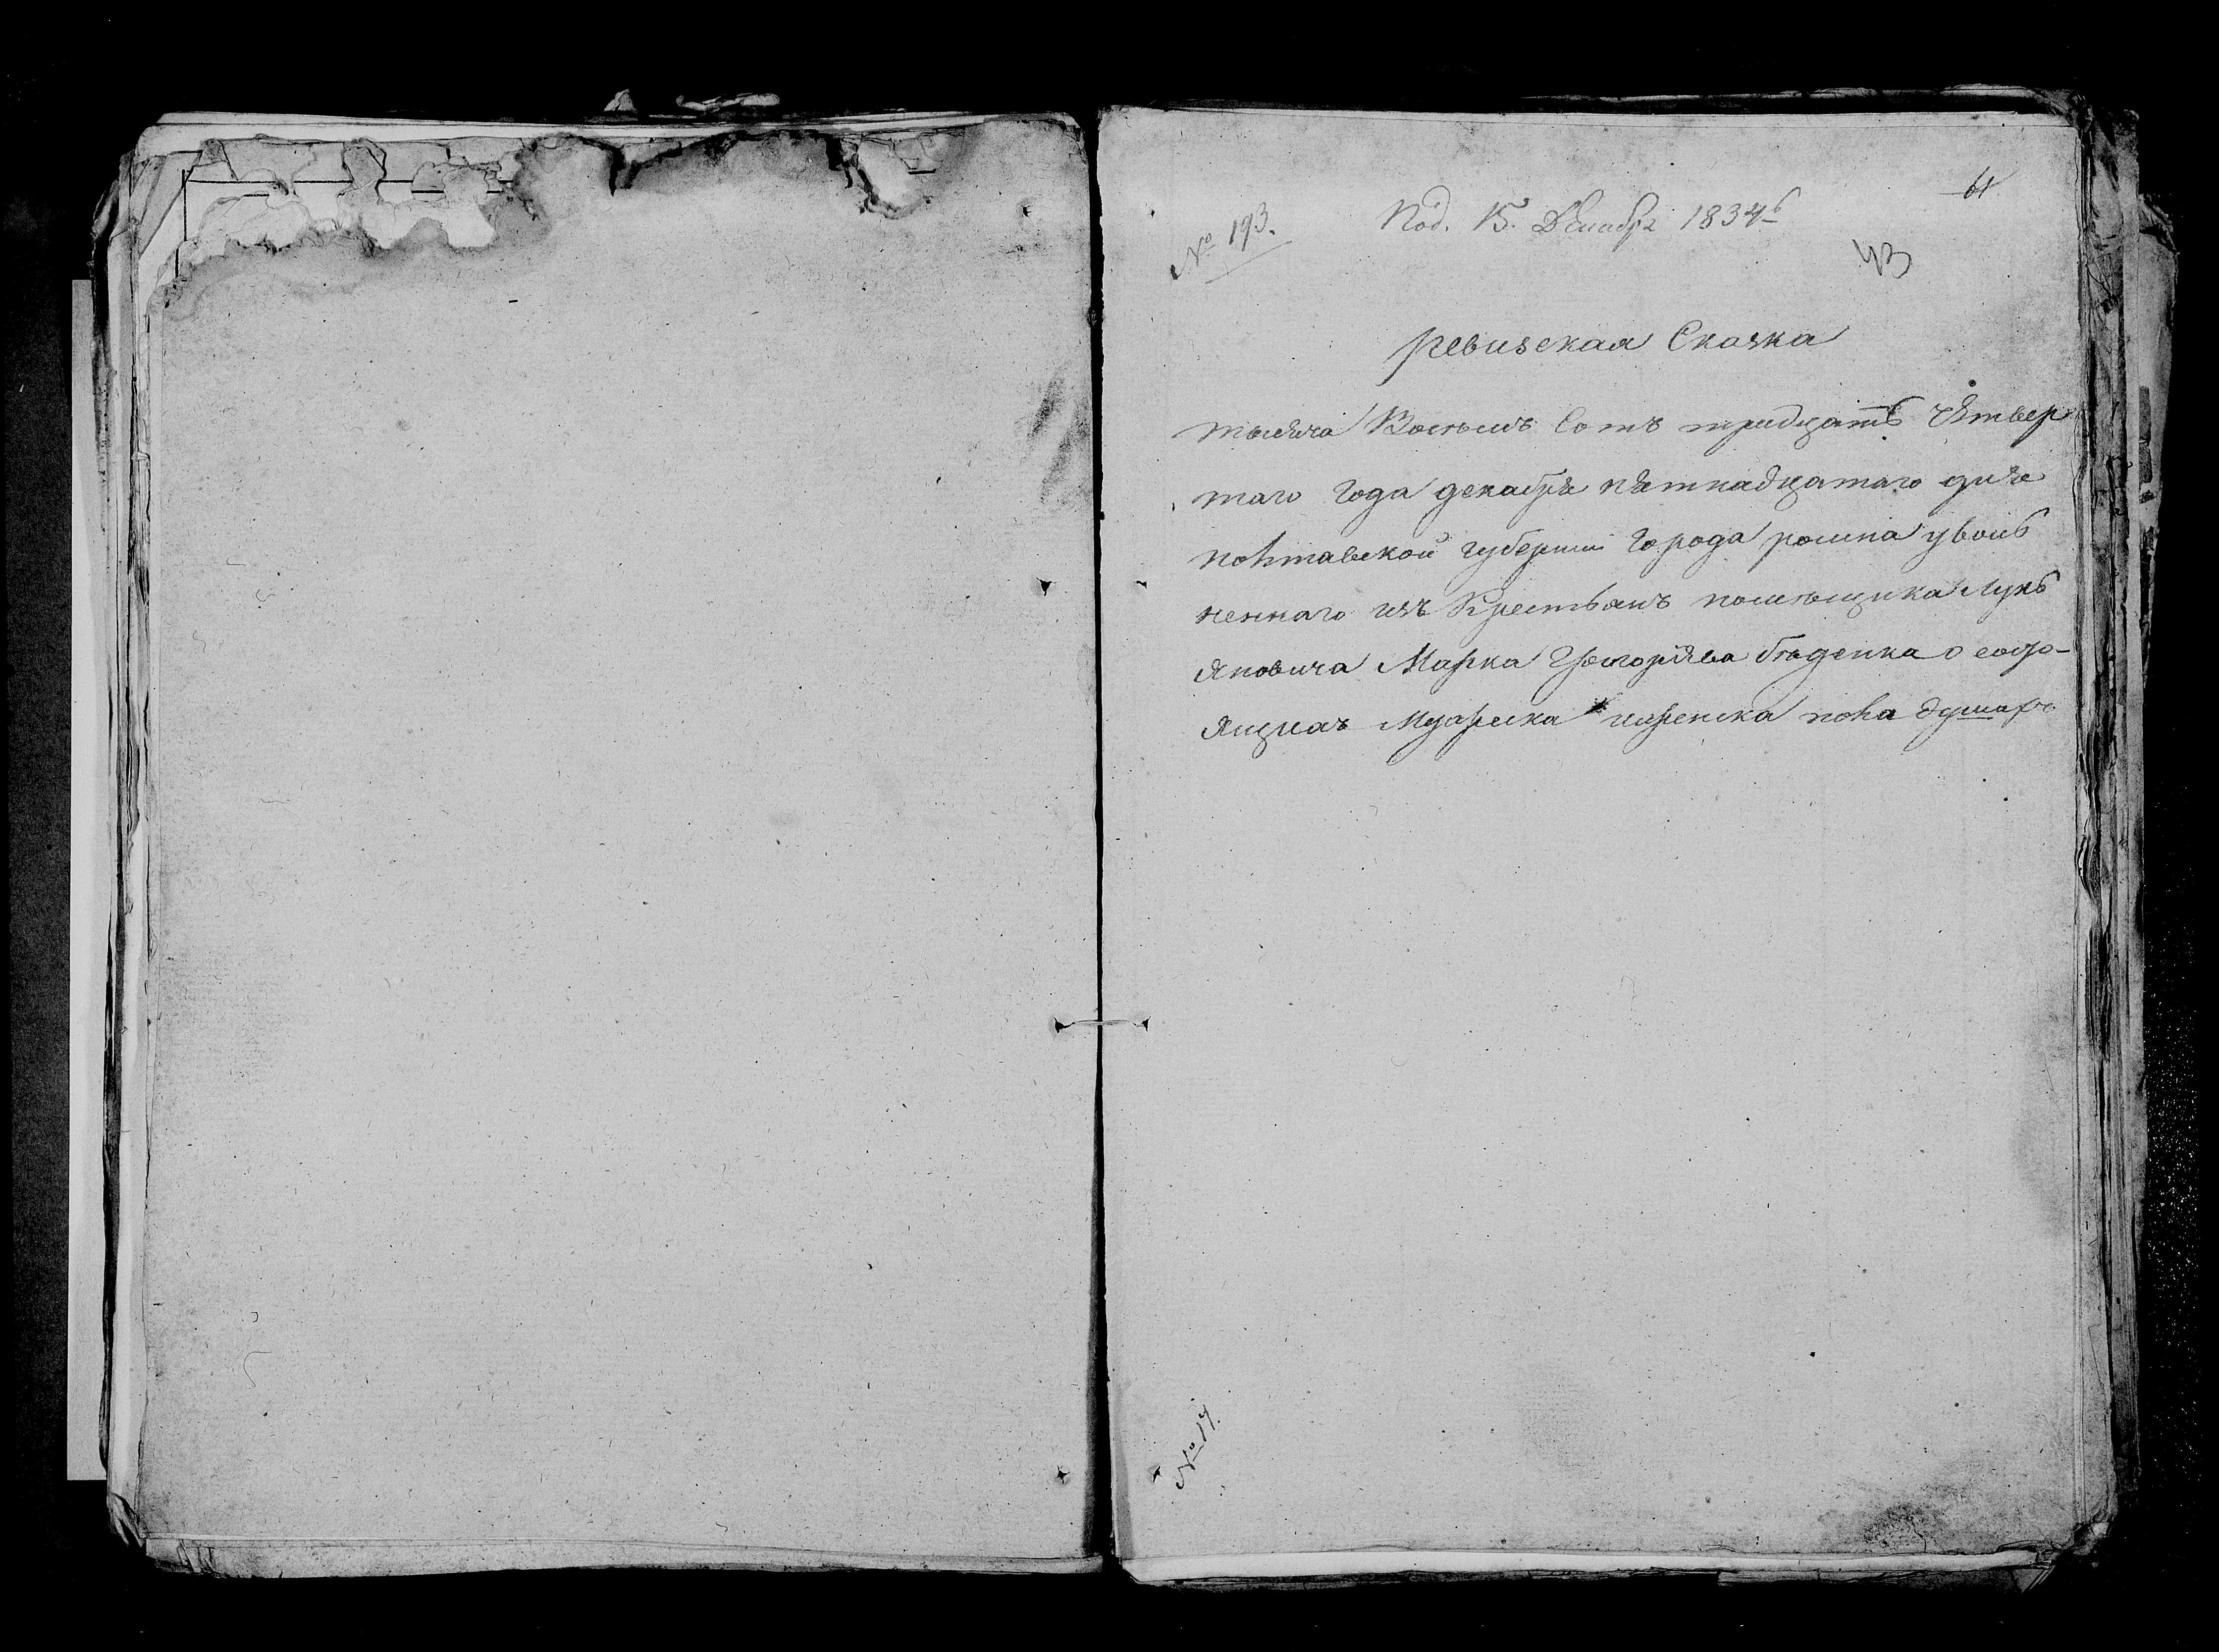 61
№ 193.
Под. 15. Декабря 1834
43
ревизская Сказка
тысяча Восемь Сотъ тридцать Четвер
таго Года декабря пятнадцатаго дня
полтавской губернии города ромна уволь
неннаго изъ Крестьянъ помѣщика Лукь
яновича Марка Григорїева о состо-
ящихъ Мужеска женска пола душахъ
№ 17.